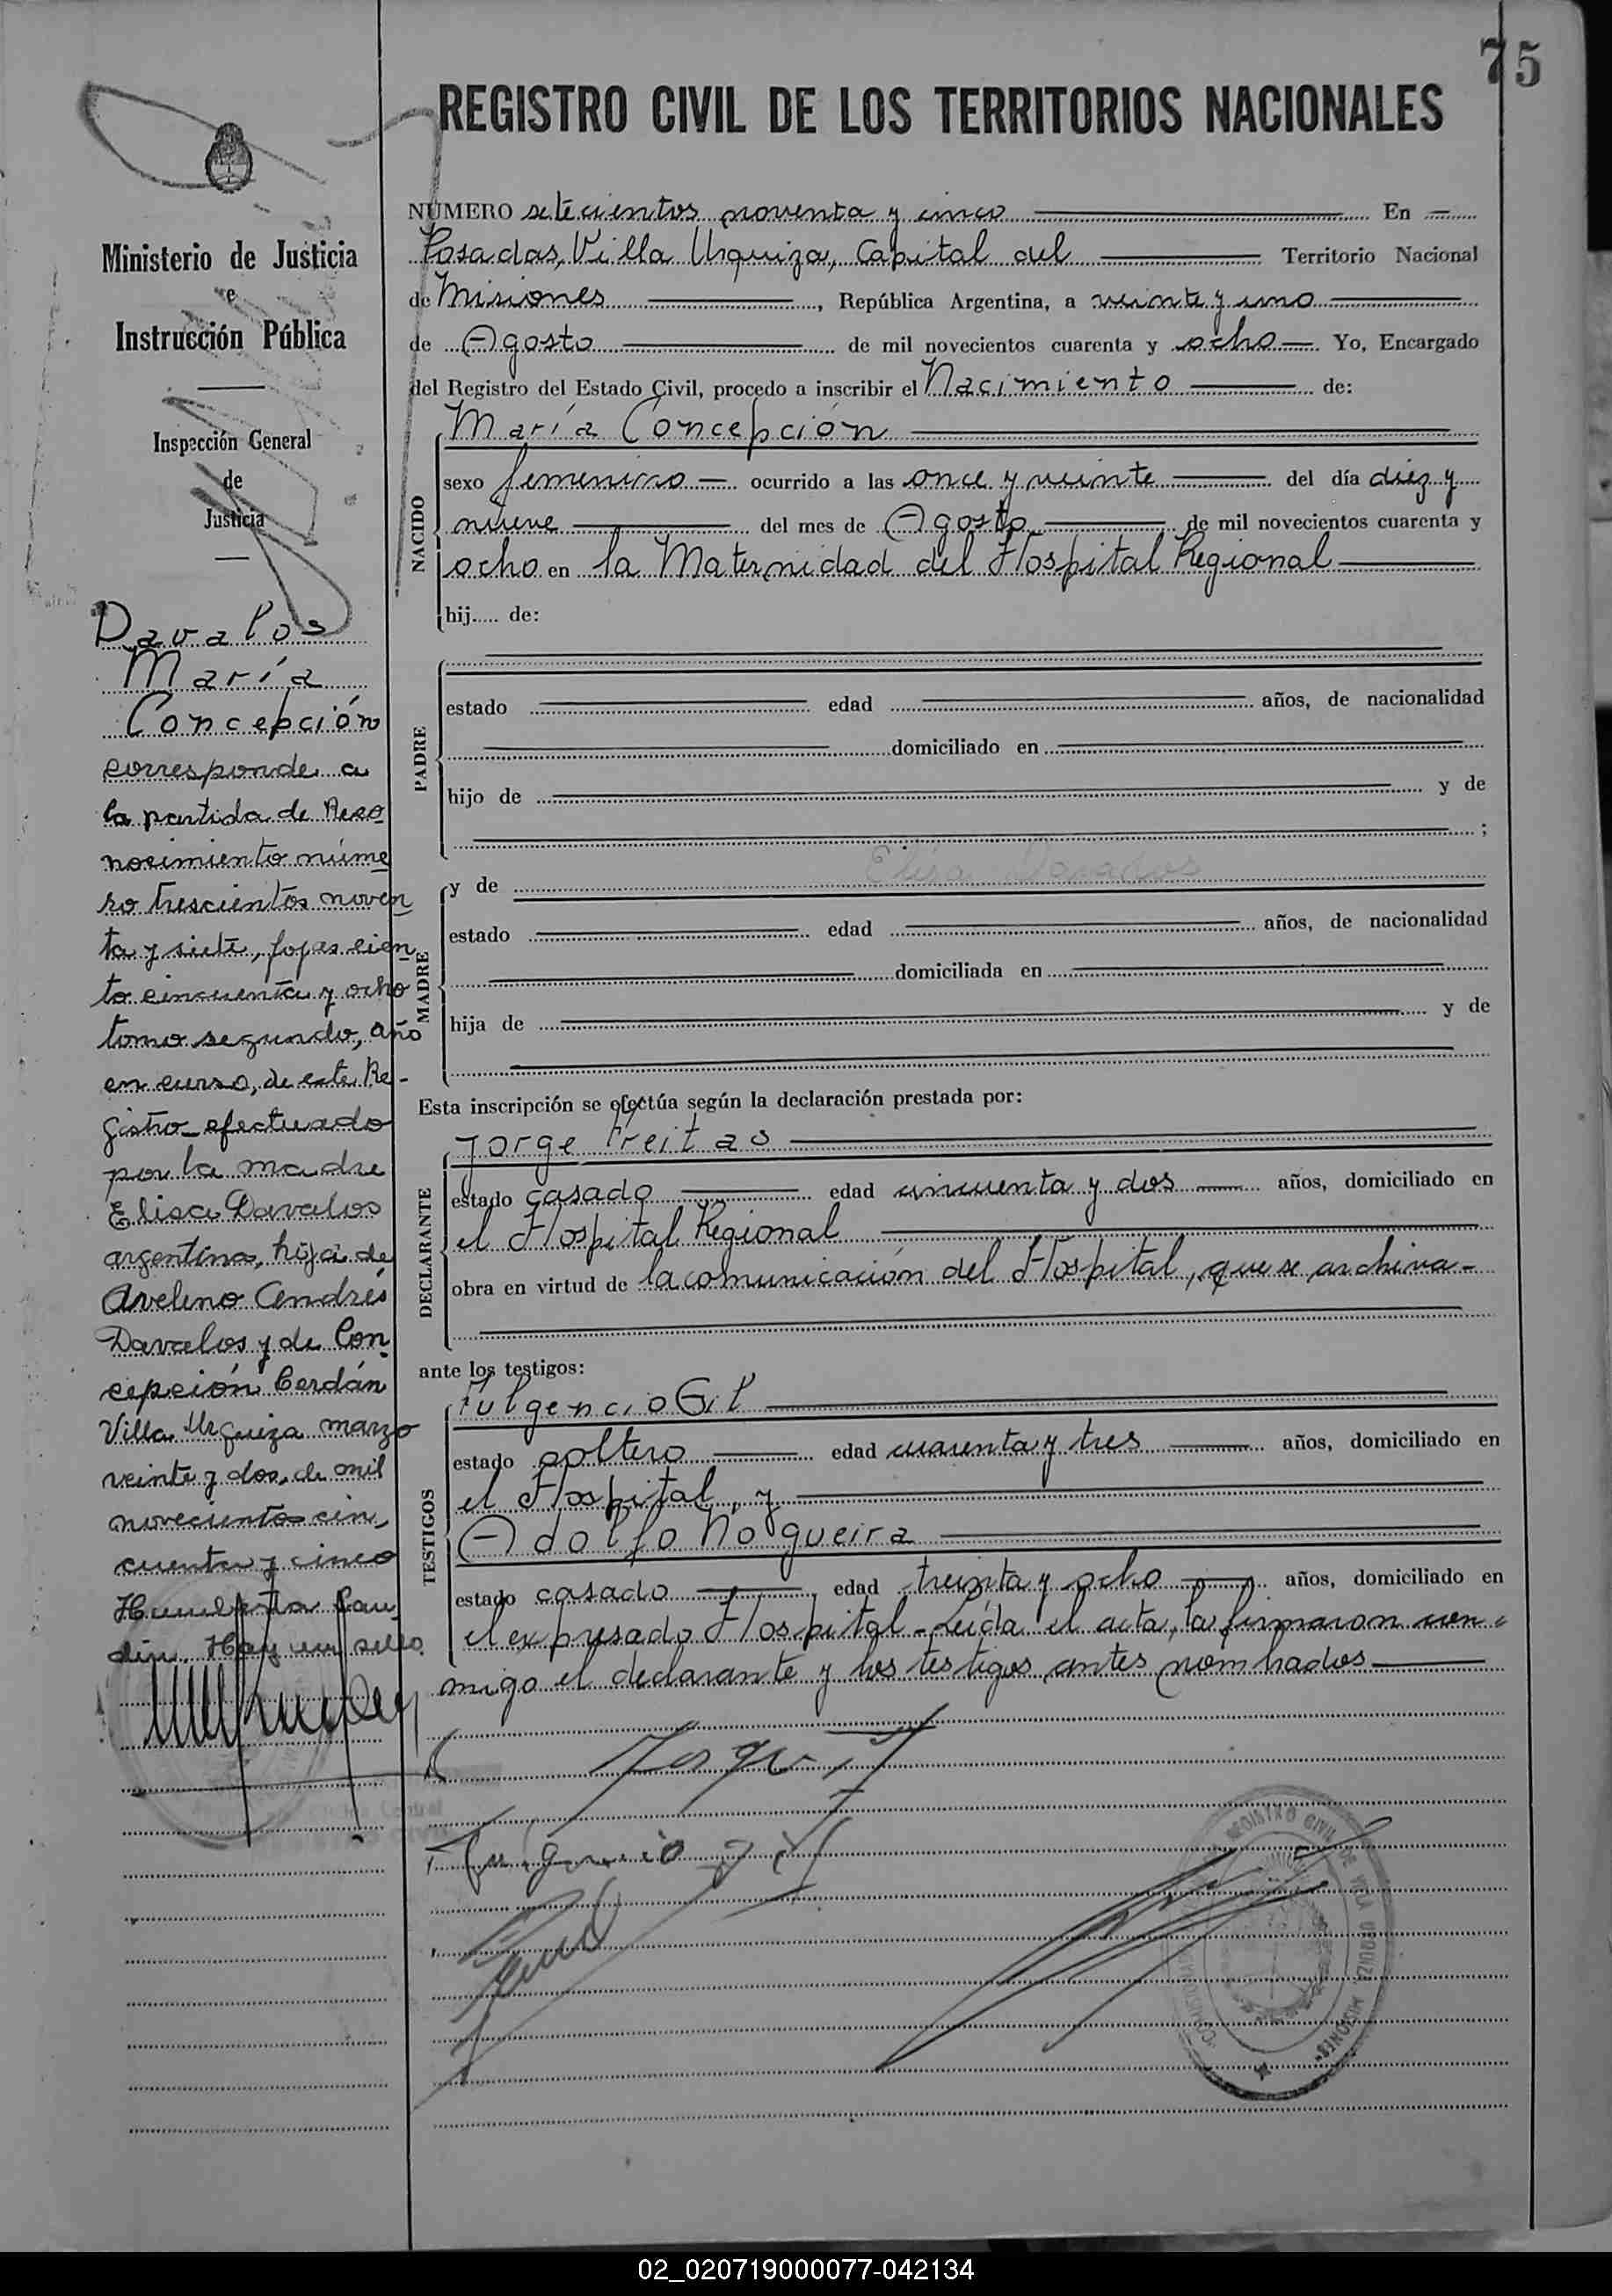 75
REGISTRO CIVIL DE LOS TERRITORIOS NACIONALES
Ministerio de Justicia
e
Instrucción Pública
Inspección General
de
Justicia
Davalos
María
Concepción
corresponde a
la partida de Reco
nocimiento núme
ro trescientos noven
ta y siete, fojas cien
to cincuenta y ocho
tomo segundo, año
en curso, de este Re-
gistro efectuado
por la madre
Elisa Davalos
argentina, hija de
Avelino Andrés
Davalos y de Con
cepción Cerdán
Villa Urquiza marzo
veinte y dos, de mil
novecientos cin
cuenta y cinco
Hay un sello
NÚMERO setecientos noventa y cinco En
Posadas, Villa Urquiza, Capital del Territorio Nacional
de Misiones, República Argentina, a veinte y uno
de Agosto de mil novecientos cuarenta y ocho Yo, Encargado
del Registro del Estado Civil, procedo a inscribir el Nacimiento de:
NACIDO
María Concepción
sexo femenino ocurrido a las once y veinte del día diez y
nueve del mes de Agosto de mil novecientos cuarenta y
ocho en la Maternidad del Hospital Regional
hij..... de:
PADRE
estado edad años, de nacionalidad
domiciliado en
hijo de y de
;
MADRE
y de Elisa Davalos
estado edad años, de nacionalidad
domiciliada en
hija de y de
Esta inscripción se efectúa según la declaración prestada por:
DECLARANTE
Jorge Freitas
estado casado edad cincuenta y dos años, domiciliado en
el Hospital Regional
obra en virtud de la comunicación del Hospital, que se archiva-
ante los testigos:
TESTIGOS
Fulgencio Gil
estado soltero edad cuarenta y tres años, domiciliado en
el Hospital, y
Adolfo Nogueira
estado casado edad treinta y ocho años, domiciliado en
el expresado Hospital-Leída el acta, la firmaron con-
migo el declarante y los testigos antes nombrados
Fulgencio Gil
REGISTRO CIVIL DE VILLA URQUIZA MISIONES
02_020719000077-042134